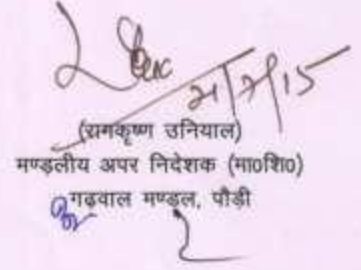 (रामकृष्ण उनियाल)
मण्डलीय अपर निदेशक (मा०शि०)
गढ़वाल मण्डल, पौड़ी